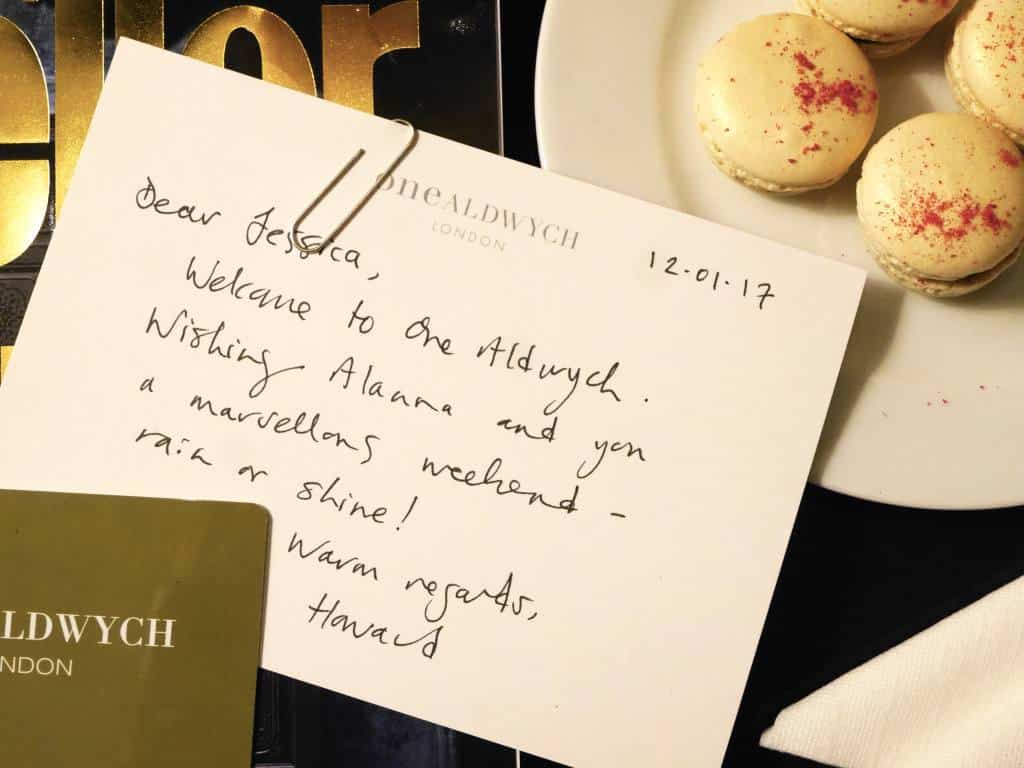 eller
oneALDWYCH
LONDON
12.01.17
Dear Jessica,
Welcome to One Aldwych.
Wishing Alanna and you
a marvellous weekend -
rain or shine!
Warm regards,
Howard
LDWYCH
NDON